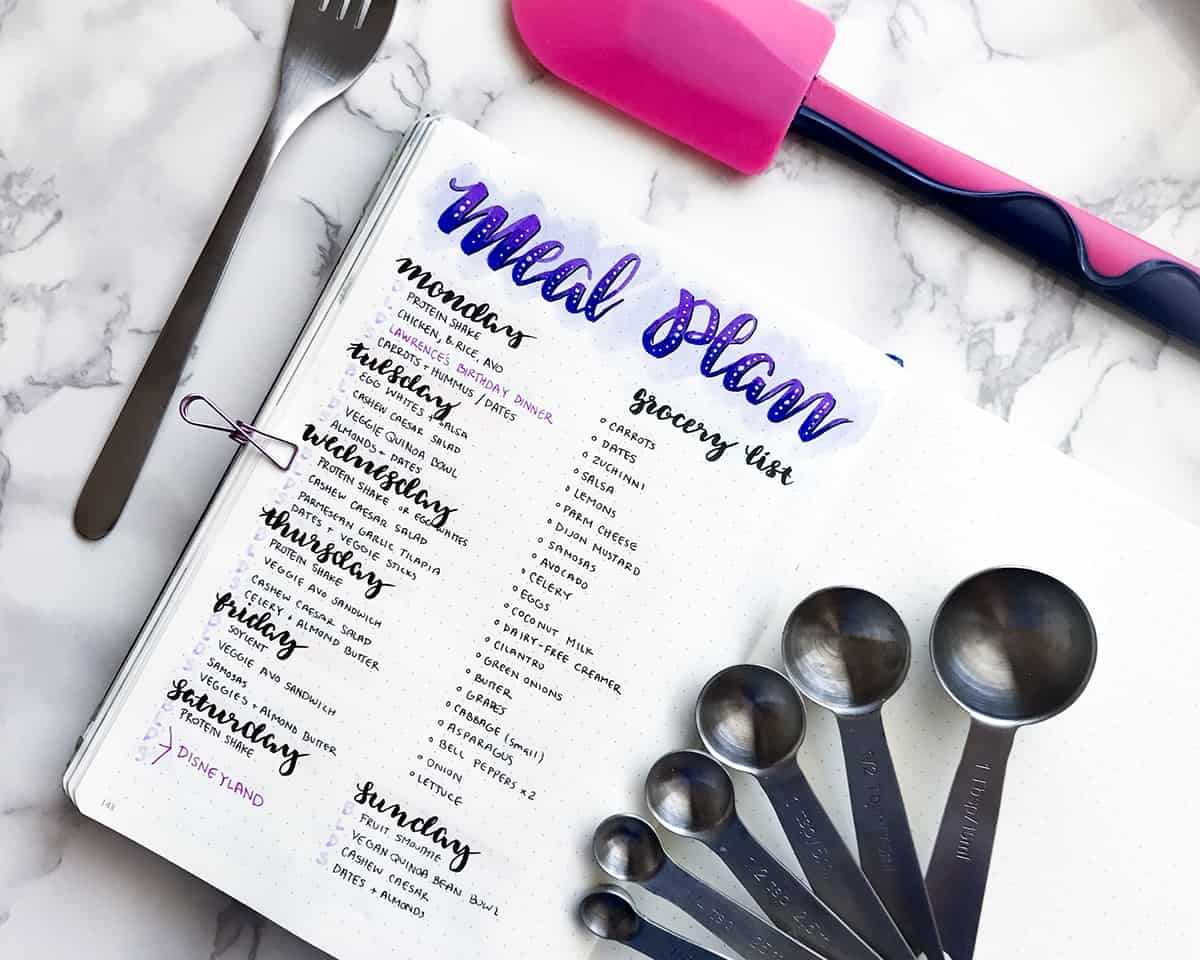 meal plan
monday
PROTEIN SHAKE
CHICKEN, B. RICE, AVO
LAWRENCE'S BIRTHDAY DINNER
CARROTS + HUMMUS / DATES
tuesday
EGG WHITES + SALSA
CASHEW CAESAR SALAD
VEGGIE QUINOA BOWL
ALMONDS + DATES
wednesday
PROTEIN SHAKE OR EGG WHITES
CASHEW CAESAR SALAD
PARMESEAN GARLIC TILAPIA
DATES + VEGGIE STICKS
thursday
PROTEIN SHAKE
VEGGIE AVO SANDWICH
CASHEW CAESAR SALAD
CELERY + ALMOND BUTTER
friday
SOYLENT
VEGGIE AVO SANDWICH
SAMOSAS
VEGGIES + ALMOND BUTTER
saturday
PROTEIN SHAKE
DISNEYLAND
148
sunday
FRUIT SMOOTHIE
VEGAN QUINOA BEAN BOWL
CASHEW CAESAR
DATES + ALMONDS
grocery list
CARROTS
DATES
ZUCHINNI
SALSA
LEMONS
PARM CHEESE
DIJON MUSTARD
SAMOSAS
AVOCADO
CELERY
EGGS
COCONUT MILK
DAIRY-FREE CREAMER
CILANTRO
GREEN ONIONS
BUTTER
GRAPES
CABBAGE (small)
ASPARAGUS
BELL PEPPERS x2
ONION
LETTUCE
1 Tbsp/15ml